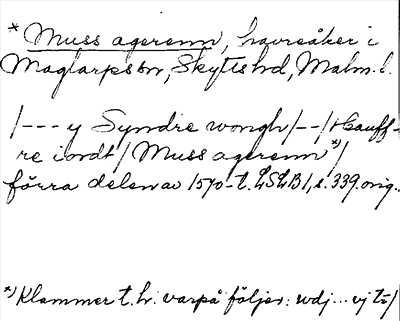 * Muss agerenn, havreåker i
Maglarps sn, Skytts hd, Malm. l.
/--- y Syndre wongh/--/Hauff-
re iordt/Muss agerenn *)/
förra delen av 1570-t. LSLB1, s. 339 orig.
*) Klammer t. h. varpå följer: wdj... vj tz/